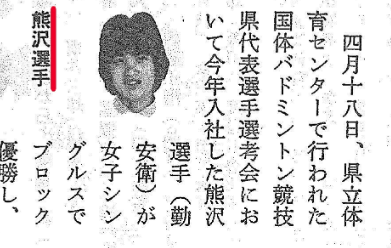 四月十八日、県立体
育センターで行われた
国体バドミントン競技
県代表選手選考会にお
いて今年入社した熊沢
選手（勤
安衛）が
女子シン
グルスで
ブロック
優勝し、
熊沢選手